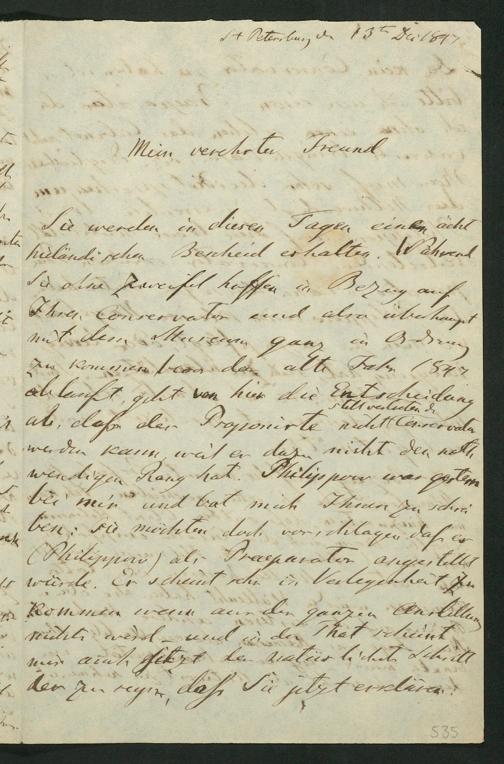 St Petersburg den 13ten Dec 1847
Mein verehrter Freund
Sie werden in diesen Tagen einen ächt
hieländischen Bescheid erhalten. Während
Sie ohne Zweifel hoffen in Bezug auf
Ihren Conservator und also überhaupt
mit dem Museum ganz in Ordnung
zu kommen bevor das alte Jahr 1847
abläuft, geht von hier die Entscheidung
ab, dass der Proponirte nicht stellvertretender Conservator
werden kann, weil er dazu nicht den noth
wendigen Rang hat. Philippow war gestern
bei mir und bat mich Ihnen zu schrei
ben: sie möchten doch vorschlagen dass er
(Philippow) als Praeparator angestellt
würde. Er scheint sehr in Verlegenheit zu
kommen wenn aus der ganzen Anstellung
nichts wird – und in der That scheint
mir auch jetzt der natürlichste Schritt
der zu seyn, dass Sie jetzt erklären:
535